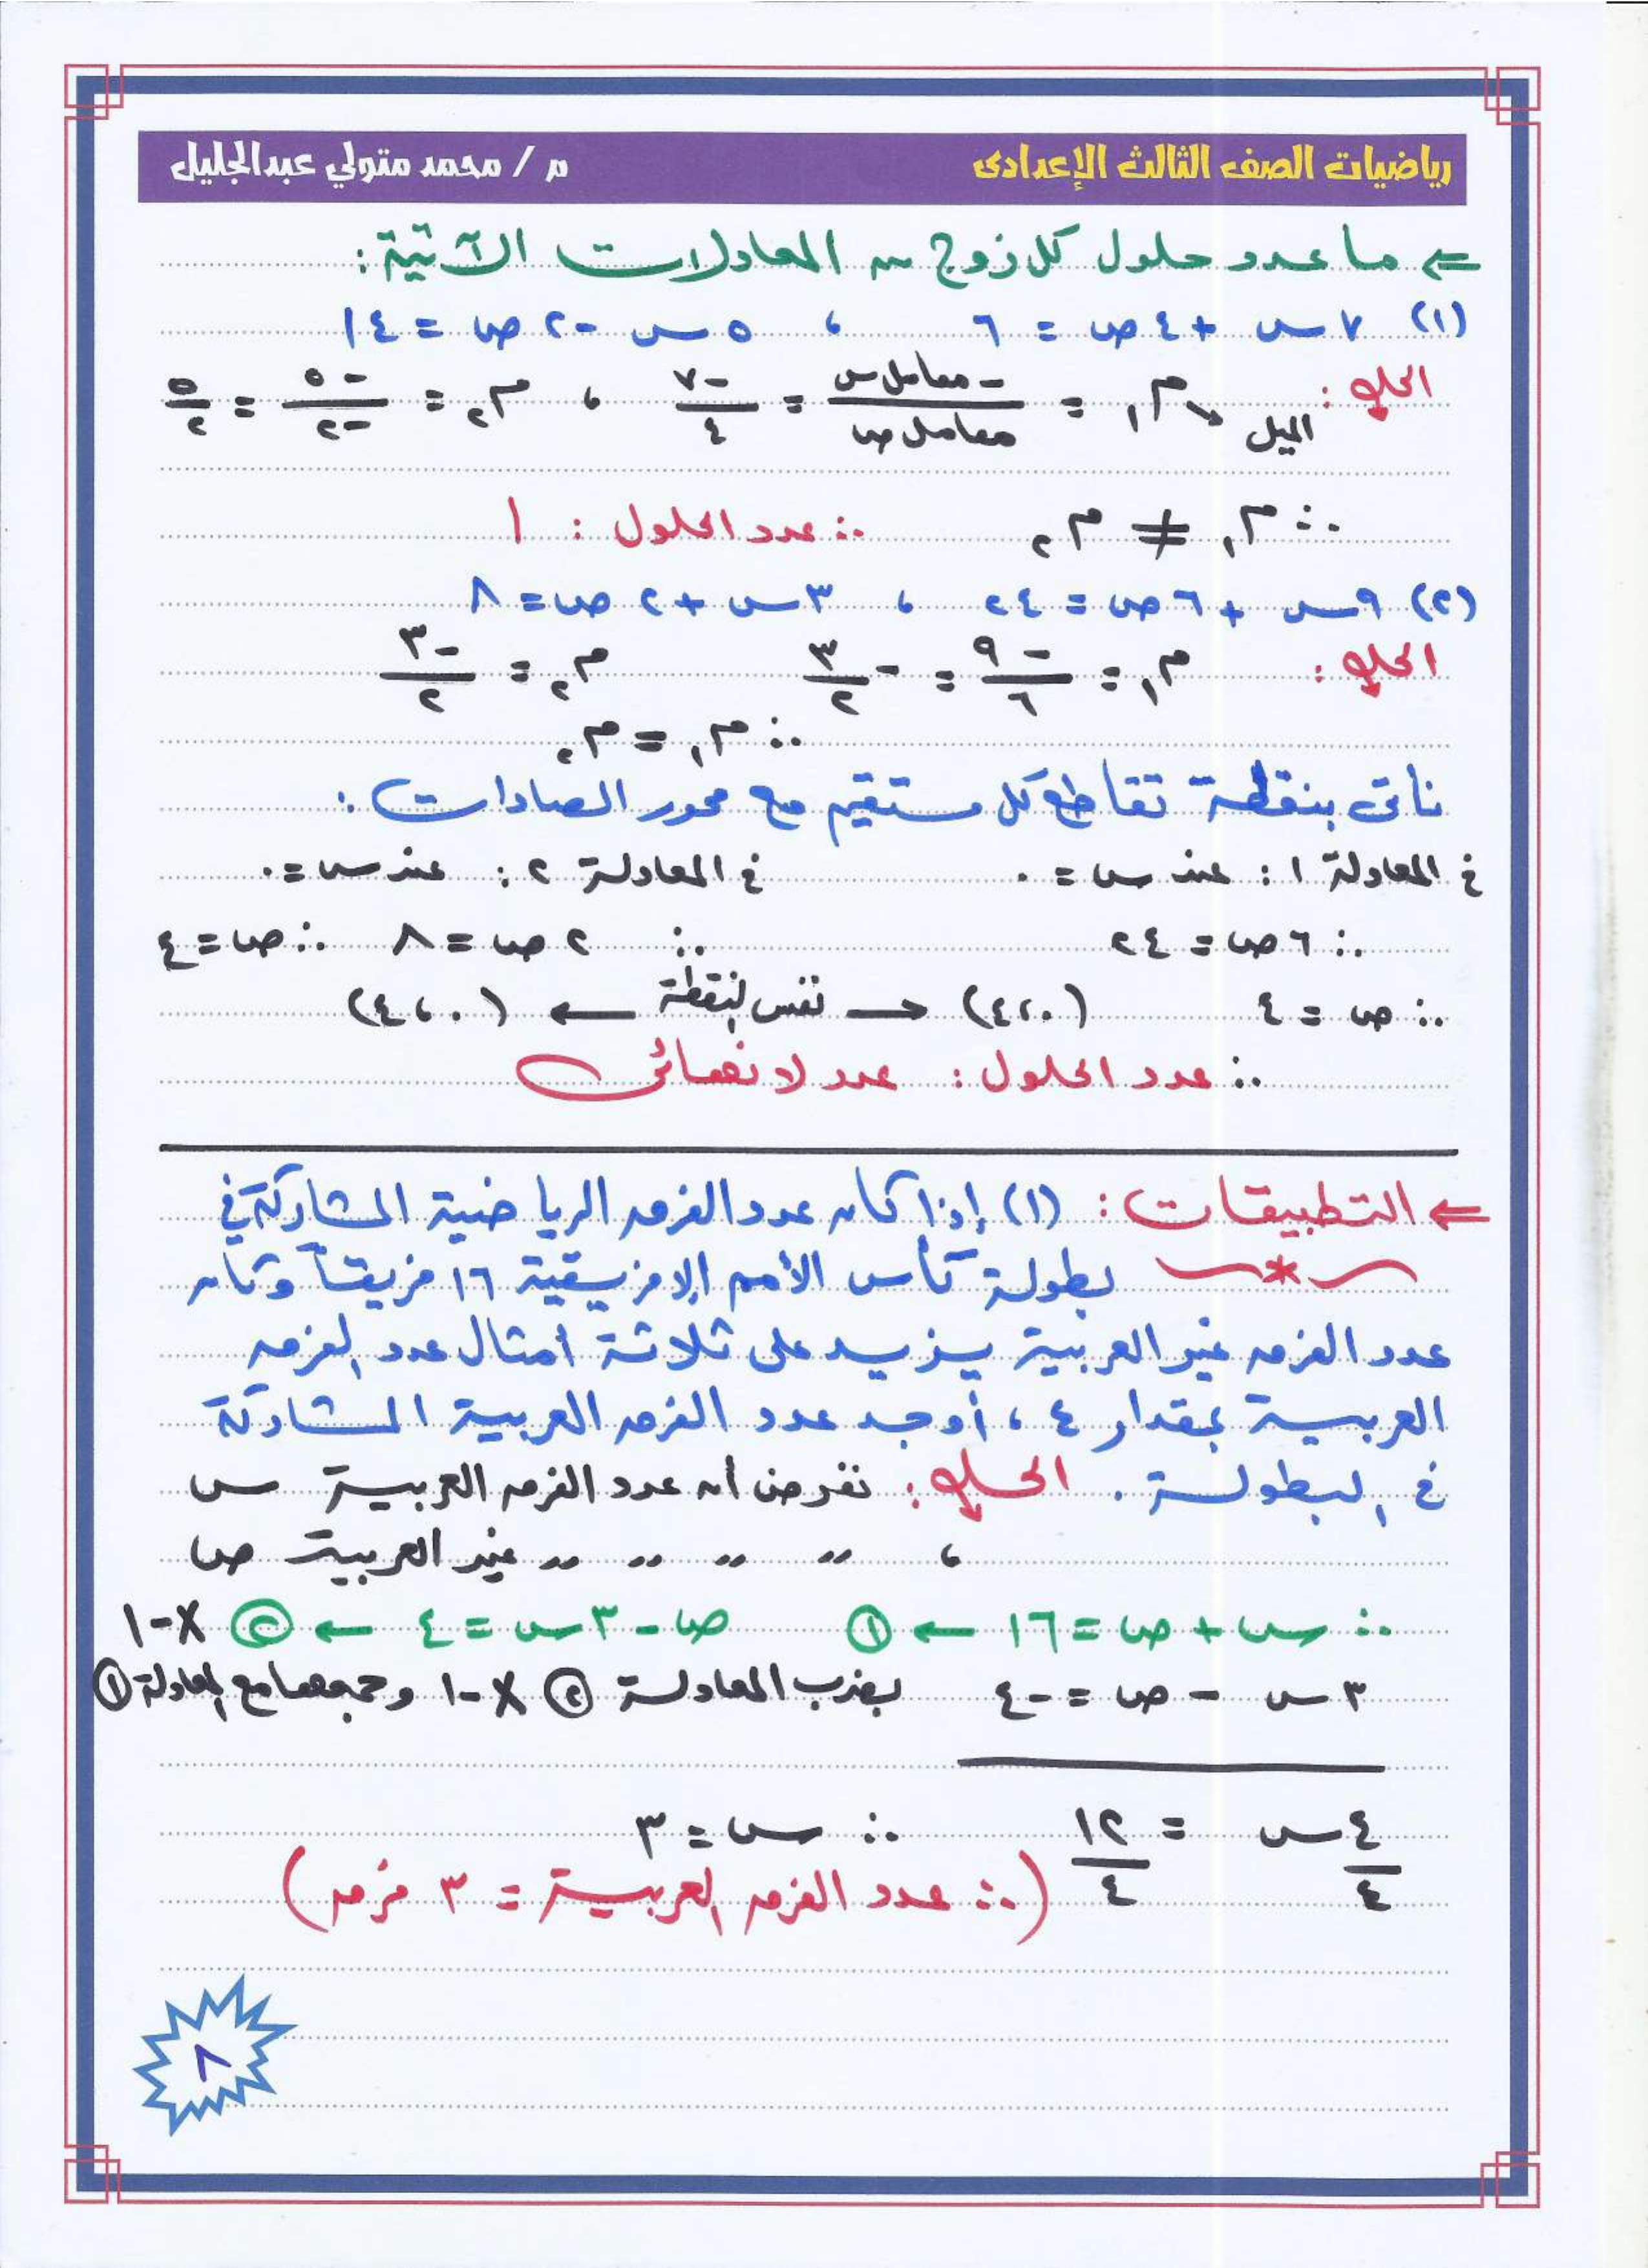 رياضيات الصف الثالث الإعدادى م / محمد متولي عبدالجليل
⇐ ما عدد حلول كل زوج من المعادلات الآتية :
(١) ٧س + ٤ص = ٦ ، ٥س - ٢ص = ١٤
الحل : الميل ← م١ = -معامل س / معامل ص = -٧ / ٤ ، م٢ = -٥ / -٢ = ٥ / ٢
∴ م١ ≠ م٢ ∴ عدد الحلول : ١
(٢) ٩س + ٦ص = ٢٤ ، ٣س + ٢ص = ٨
الحل : م١ = -٩ / ٦ = -٣ / ٢ م٢ = -٣ / ٢
∴ م١ = م٢
نأتى بنقطة تقاطع كل مستقيم مع محور الصادات :
فى المعادلة ١ : عند س = ٠ فى المعادلة ٢ : عند س = ٠
∴ ٦ص = ٢٤ ∴ ٢ص = ٨ ∴ ص = ٤
∴ ص = ٤ (٠،٤) ← نفس النقطة → (٠،٤)
∴ عدد الحلول : عدد لا نهائى
⇐ التطبيقات : (١) إذا كان عدد الفرق الرياضية المشاركة فى
بطولة كأس الأمم الإفريقية ١٦ فريقاً وكان
عدد الفرق غير العربية يزيد على ثلاثة أمثال عدد الفرق
العربية بمقدار ٤ ، أوجد عدد الفرق العربية المشاركة
فى البطولة . الحل : نفرض أن عدد الفرق العربية س
، ,, ,, ,, ,, غير العربية ص
∴ س + ص = ١٦ ← ① ص - ٣س = ٤ ← ② × -١
٣س - ص = -٤ بضرب المعادلة ② × -١ وجمعها مع المعادلة ①
٤س / ٤ = ١٢ / ٤ ∴ س = ٣
(∴ عدد الفرق العربية = ٣ فرق)
٨